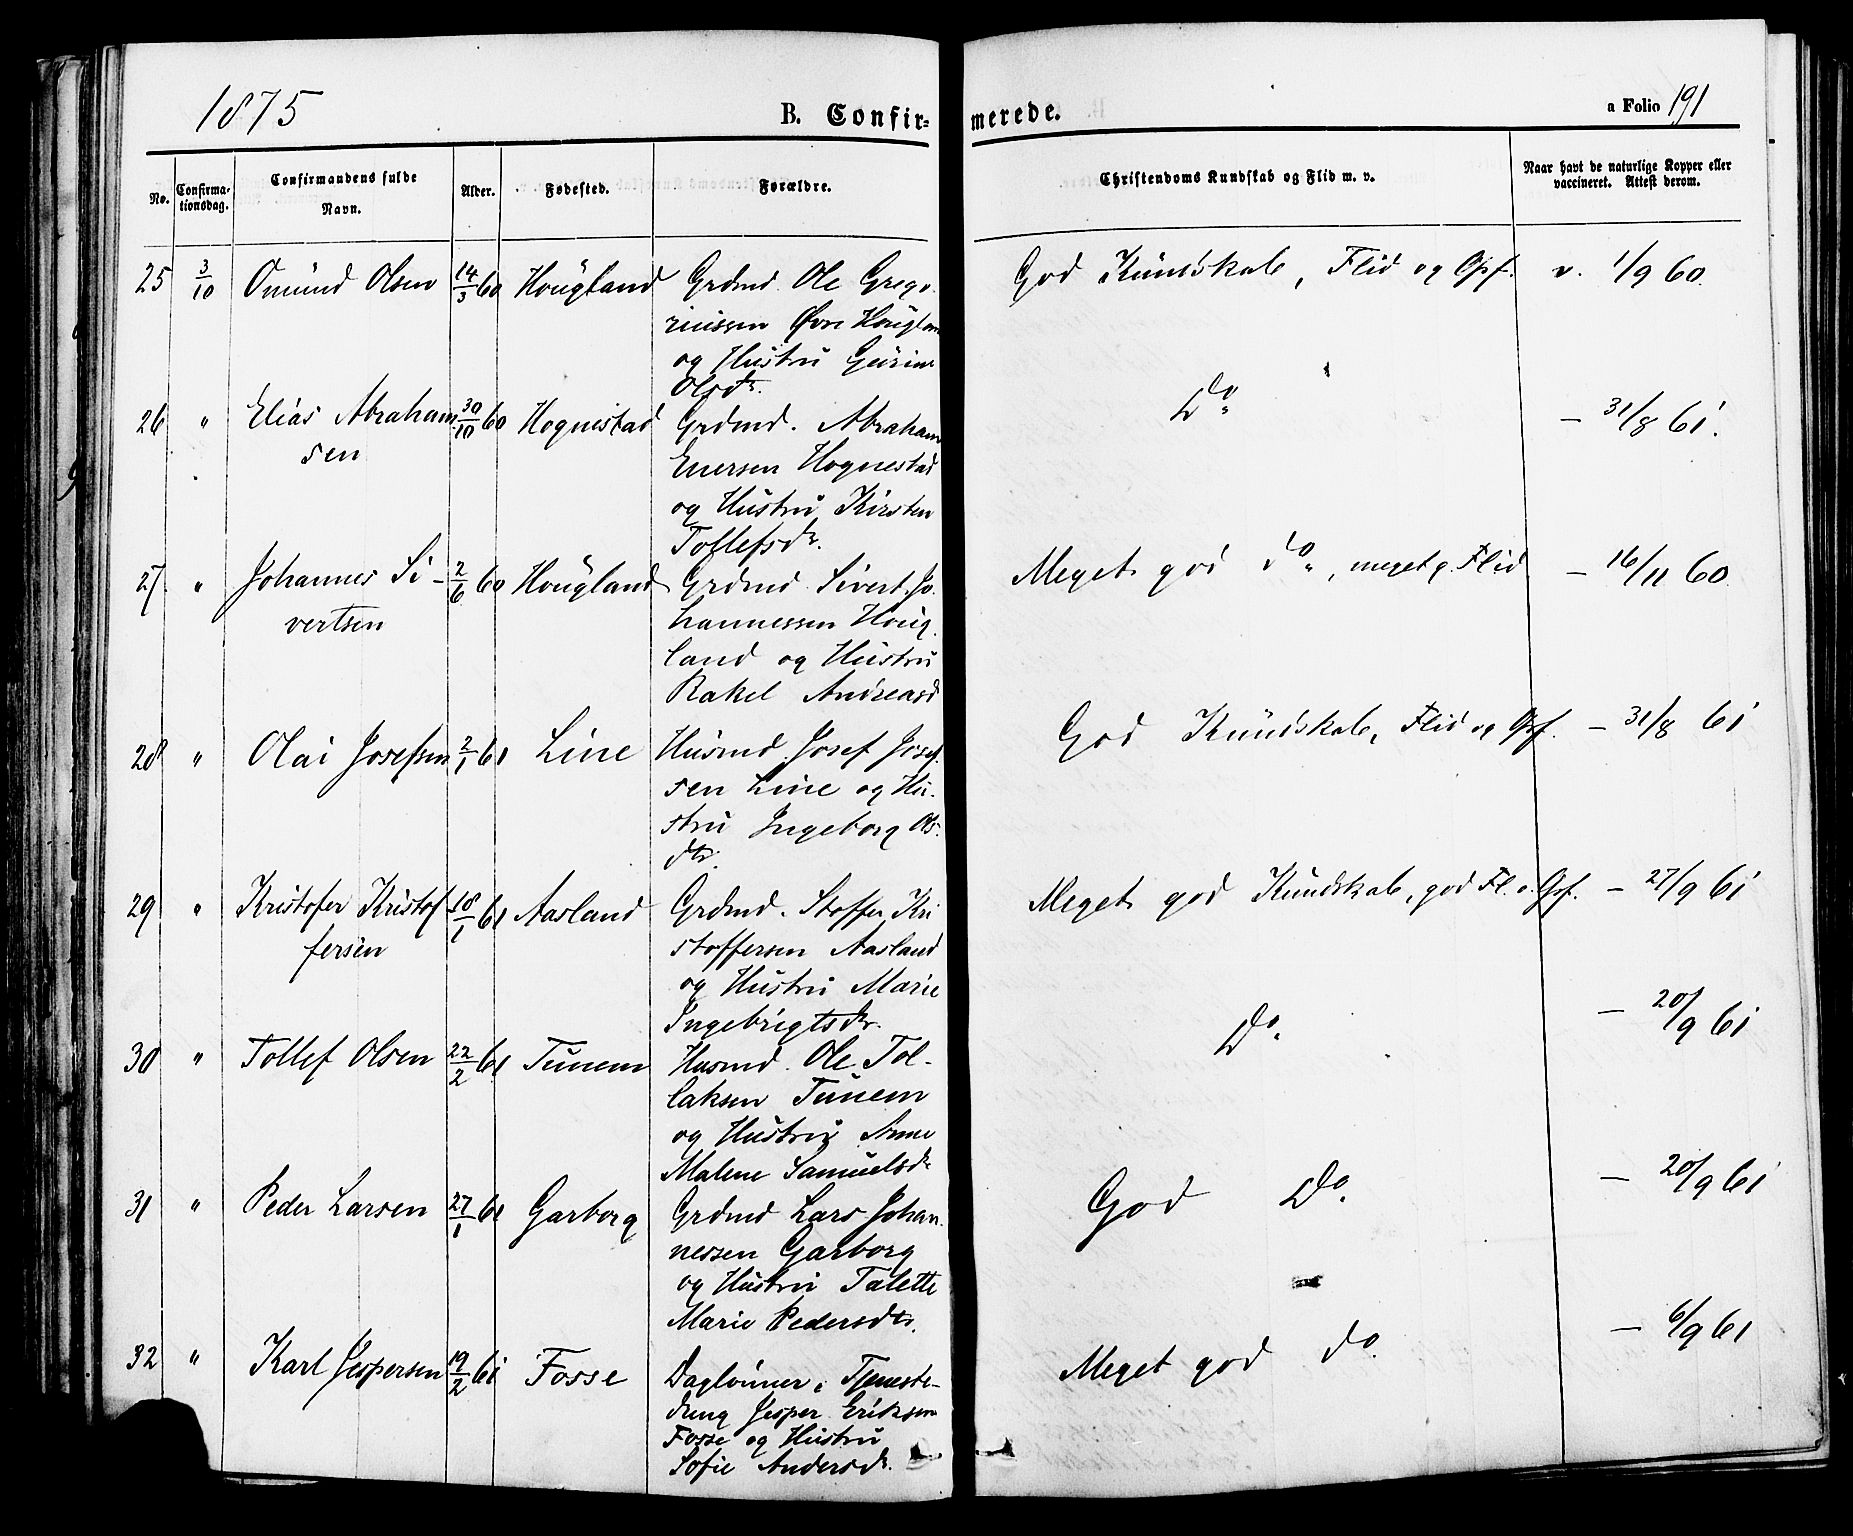 1875
B. Confir-
merede.
a Folio 191
No.
Confirma-
tionsdag.
Confirmandens fulde
Navn.
Alder.
Fødested.
Forældre.
Christendoms Kundskab og Flid m. v.
Naar havt de naturlige Kopper eller
vaccineret. Attest derom.
25 3/10 Omund Olsen 14/3 60 Hougland Grdmd. Ole Grego- God Kundskab, Flid og Opf. v. 1/9 60.
riussen Øvre Hougland
og Hustru Gurine
Olsdr.
26 " Elias Abraham 30/10 60 Hognestad Grdmd. Abraham Do. — 31/8 61.
sen
Enersen Hognestad
og Hustru Kirsten
Tollefsdr.
27 " Johannes Si- 2/6 60 Hougland Grdmd. Sivert Jo- Meget god do., meget g. Flid — 16/11 60.
vertsen
hannessen Houg-
land og Hustru
Rakel Andreasd
28 " Olai Josefsen 2/1 61 Line Husmd. Josef Josef- God Kundskab, Flid og Opf. — 31/8 61
sen Line og Hu-
stru Ingeborg Ols-
dtr.
29 " Kristofer Kristof 18/1 61 Aasland Grdmd. Stoffer Kri Meget god Kundskab, god Fl. o. Opf. — 27/9 61
fersen
stoffersen Aasland
og Hustru Marie
Ingebrigtsdr.
30 " Tollef Olsen 22/2 61 Tunem Husmd. Ole Tol- Do. — 20/9 61
laksen Tunem
og Hustru Anne
Malene Samuelsdr
31 " Peder Larsen 27/1 61 Garborg Grdmd Lars Johan- God Do. — 20/9 61
nessen Garborg
og Hustru Talette
Marie Pedersdtr.
32 " Karl Jespersen 19/2 61 Fosse Daglønner, Tjeneste- Meget god do. — 6/9 61
dreng Jesper Eriksen
Fosse og Hustru
Sofie Andersdr.